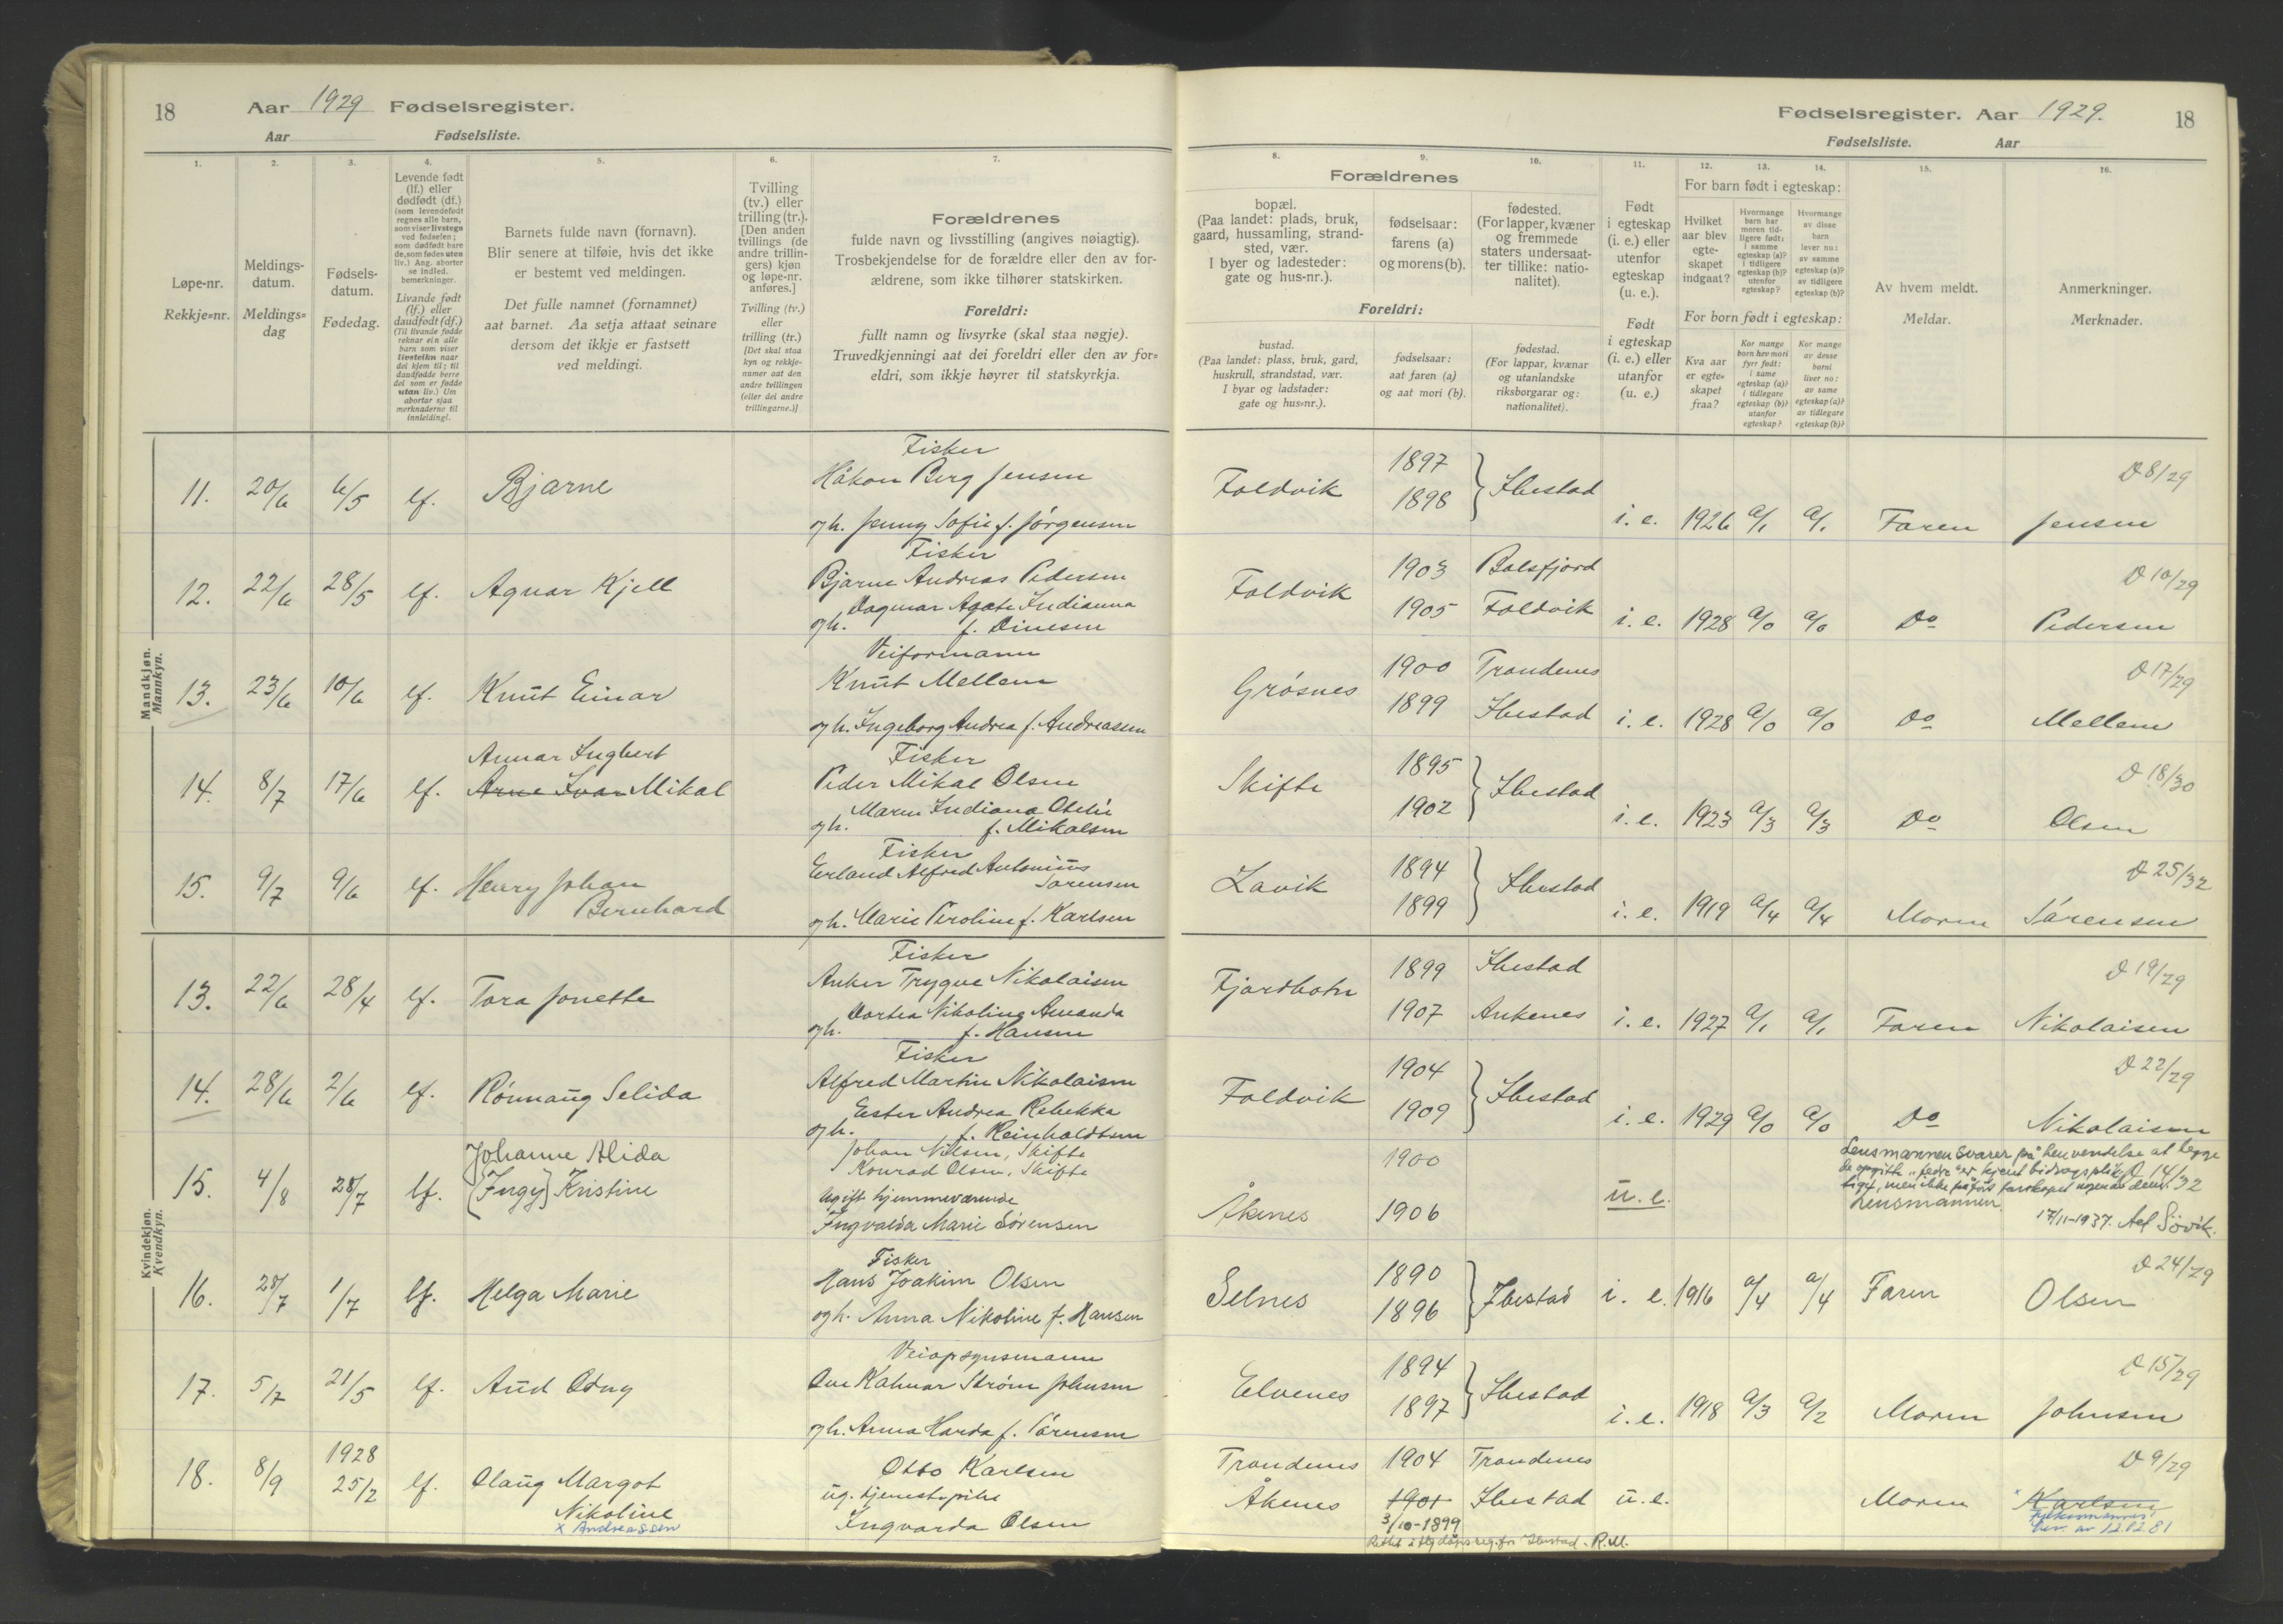 18 Aar 1929 Fødselsregister.
Aar Fødselsliste.
1. 2. 3. 4. 5. 6. 7.
Løpe-nr.
Rekkje=nr.
Meldings-
datum.
Meldings=
dag
Fødsels-
datum.
Fødedag.
Levende født
(lf.) eller
dødfødt (df.)
(som levendefødt
regnes alle barn,
som viser livstegn
ved fødselen;
som dødfødt bare
de, som fødes uten
liv.) Ang. aborter
se indled.
bemerkninger.
Livande født
(lf.) eller
daudfødt (df.)
(Til livande fødde
reknar ein alle
born som viser
livsteikn naar
dei kjem til; til
daudfødde berre
dei som er fødde
utan liv.) Um
abortar sjaa
merknaderne til
innleiding!.
Barnets fulde navn (fornavn).
Blir senere at tilføie, hvis det ikke
er bestemt ved meldingen.
Det fulle namnet (fornamnet)
aat barnet. Aa setja attaat seinare
dersom det ikkje er fastsett
ved meldingi.
Tvilling
(tv.) eller
trilling (tr.).
[Den anden
tvillings (de
andre trillin-
gers) kjøn
og løpe-nr.
anføres.]
Tvilling (tv.)
eller
trilling (tr.)
[Det skal staa
kyn og rekkje-
numer aat den
andre tvillingen
(eller dei andre
trillingarne.)]
Forældrenes
fulde navn og livsstilling (angives nøiagtig).
Trosbekjendelse for de forældre eller den av for-
ældrene, som ikke tilhører statskirken.
Foreldri:
fullt namn og livsyrke (skal staa nøgje).
Truvedkjenningi aat dei foreldri eller den av for=
eldri, som ikkje høyrer til statskyrkja.
Mandkjøn.
Mannkyn.
Fisker
11. 20/6 6/5 lf. Bjarne Håkon Berg Jensen
og h. Jenny Sofie f. Jørgensen
Fisker
12. 22/6 28/5 lf. Agnar Kjell Bjarne Andreas Pedersen
Dagmar Agate Indianna
og h. f. Dinesen
Veiformann
13. 23/6 10/6 lf. Knut Einar Knut Mellem
og h. Ingeborg Andrea f. Andreassen
Annar Ingbert Fisker
14. 8/7 17/6 lf. Arne Ivar Mikal Peder Mikal Olsen
Maren Indiana Otelie
og h. f. Mikalsen
Fisker
15. 9/7 9/6 lf. Henry Johan Erland Alfred Antonius
Bernhard Sørensen
og h. Marie Peroline f. Karlsen
Kvindekjøn.
Kvendkyn.
Fisker
13. 22/6 28/4 lf. Tora Jonette Anker Trygve Nikolaisen
Dortea Nikoline Amanda
og h. f. Hansen
Fisker
14. 28/6 2/6 lf. Rønnaug Selida Alfred Martin Nikolaisen
Ester Andrea Rebekka
og h. f. Reinholdtsen
Johan Nilsen, Skifte
Johanne Alida Konrad Olsen, Skifte
15. 4/8 28/7 lf. [Ingy] Kristine Ugift hjemmeværende
Ingvalda Marie Sørensen
Fisker
16. 28/7 1/7 lf. Helga Marie Hans Joakim Olsen
og h. Anna Nikoline f. Hansen
Veiopsynsmann
17. 5/7 21/5 lf. Aud Odny Ove Kalmar Strøm Johnsen
og h. Anna Harda f. Sørensen
1928
18. 8/9 25/2 lf. Olaug Margot Otto Karlsen
Nikoline ug. tjenestepike
x Andreassen Ingvarda Olsen
Fødselsregister. Aar 1929. 18
Fødselsliste. Aar
8. 9. 10. 11. 12. 13. 14. 15. 16.
Forældrenes
bopæl.
(Paa landet: plads, bruk,
gaard, hussamling, strand-
sted, vær.
I byer og ladesteder:
gate og hus-nr.).
fødselsaar:
farens (a)
og morens (b).
fødested.
(For lapper, kvæner
og fremmede
staters undersaat-
ter tillike: natio-
nalitet).
Foreldri:
bustad.
(Paa landet: plass, bruk, gard,
huskrull, strandstad, vær.
I byar og ladstader:
gate og hus=nr.).
fødselsaar:
aat faren (a)
og aat mori (b).
fødestad.
(For lappar, kvænar
og utanlandske
riksborgarar og:
nationalitet).
Født
i egteskap
(i. e.) eller
utenfor
egteskap
(u. e.).
Født
i egteskap
(i. e.) eller
utanfor
(u. e.)
For barn født i egteskap:
Hvilket
aar blev
egte-
skapet
indgaat?
Hvormange
barn har
moren tid-
ligere født:
i samme
egteskap (a)?
i tidligere
egteskap (b)?
utenfor
egteskap?
Hvormange
av disse
barn
lever nu:
av samme
egteskap (a)?
av tidligere
egteskap (b)?
For born født i egteskap:
Kva aar
er egte=
skapet
fraa?
Kor mange
born hev mori
fyrr født:
i same
egteskap (a)?
i tidlegare
egteskap (b)?
utanfor
egteskap?
Kor mange
av desse
borni
liver no:
av same
egteskap (a)?
av tidlegare
egteskap (b)?
Av hvem meldt.
Meldar.
Anmerkninger.
Merknader.
1897 D 8/29
Foldvik 1898 } Ibestad i. e. 1926 a/1 a/1 Faren Jensen
1903 Balsfjord D 10/29
Foldvik 1905 Foldvik i. e. 1928 a/0 a/0 Do Pedersen
1900 Trondenes D 17/29
Grøsnes 1899 Ibestad i. e. 1928 a/0 a/0 Do Mellem
1895 D 18/30
Skifte 1902 } Ibestad i. e. 1923 a/3 a/3 Do Olsen
1894 D 25/32
Lavik 1899 } Ibestad i. e. 1919 a/4 a/4 Moren Sørensen
1899 Ibestad D 19/29
Fjordbotn 1907 Ankenes i. e. 1927 a/1 a/1 Faren Nikolaisen
1904 D 22/29
Foldvik 1909 } Ibestad i. e. 1929 a/0 a/0 Do Nikolaisen
Lensmannen svarer på henvendelse at begge
1900 de opgitte "fedre" er kjent bidragsplik- D 14/32
tige, men ikke påført farskapet nogen av dem.
Åkenes 1906 u. e. Lensmannen 17/11-1937. Ael Søvik.
1890 D 24/29
Selnes 1896 } Ibestad i. e. 1916 a/4 a/4 Faren Olsen
1894 D 15/29
Elvenes 1897 } Ibestad i. e. 1918 a/3 a/2 Moren Johnsen
Trondenes 1904 Trondenes D 9/29
Åkenes 1901 Ibestad u. e. Moren x Karlsen
3/10-1899 Fylkesmannens
Rettet i flg dåpsreg. for Ibestad - R.M. bev. av 12.02.81